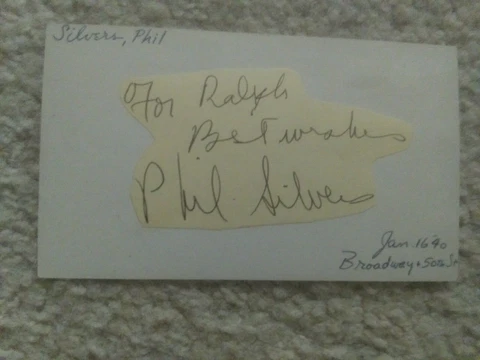 Silvers, Phil
For Ralph
Best wishes
Phil Silvers
Jan. 16 40
Broadway & 50th St